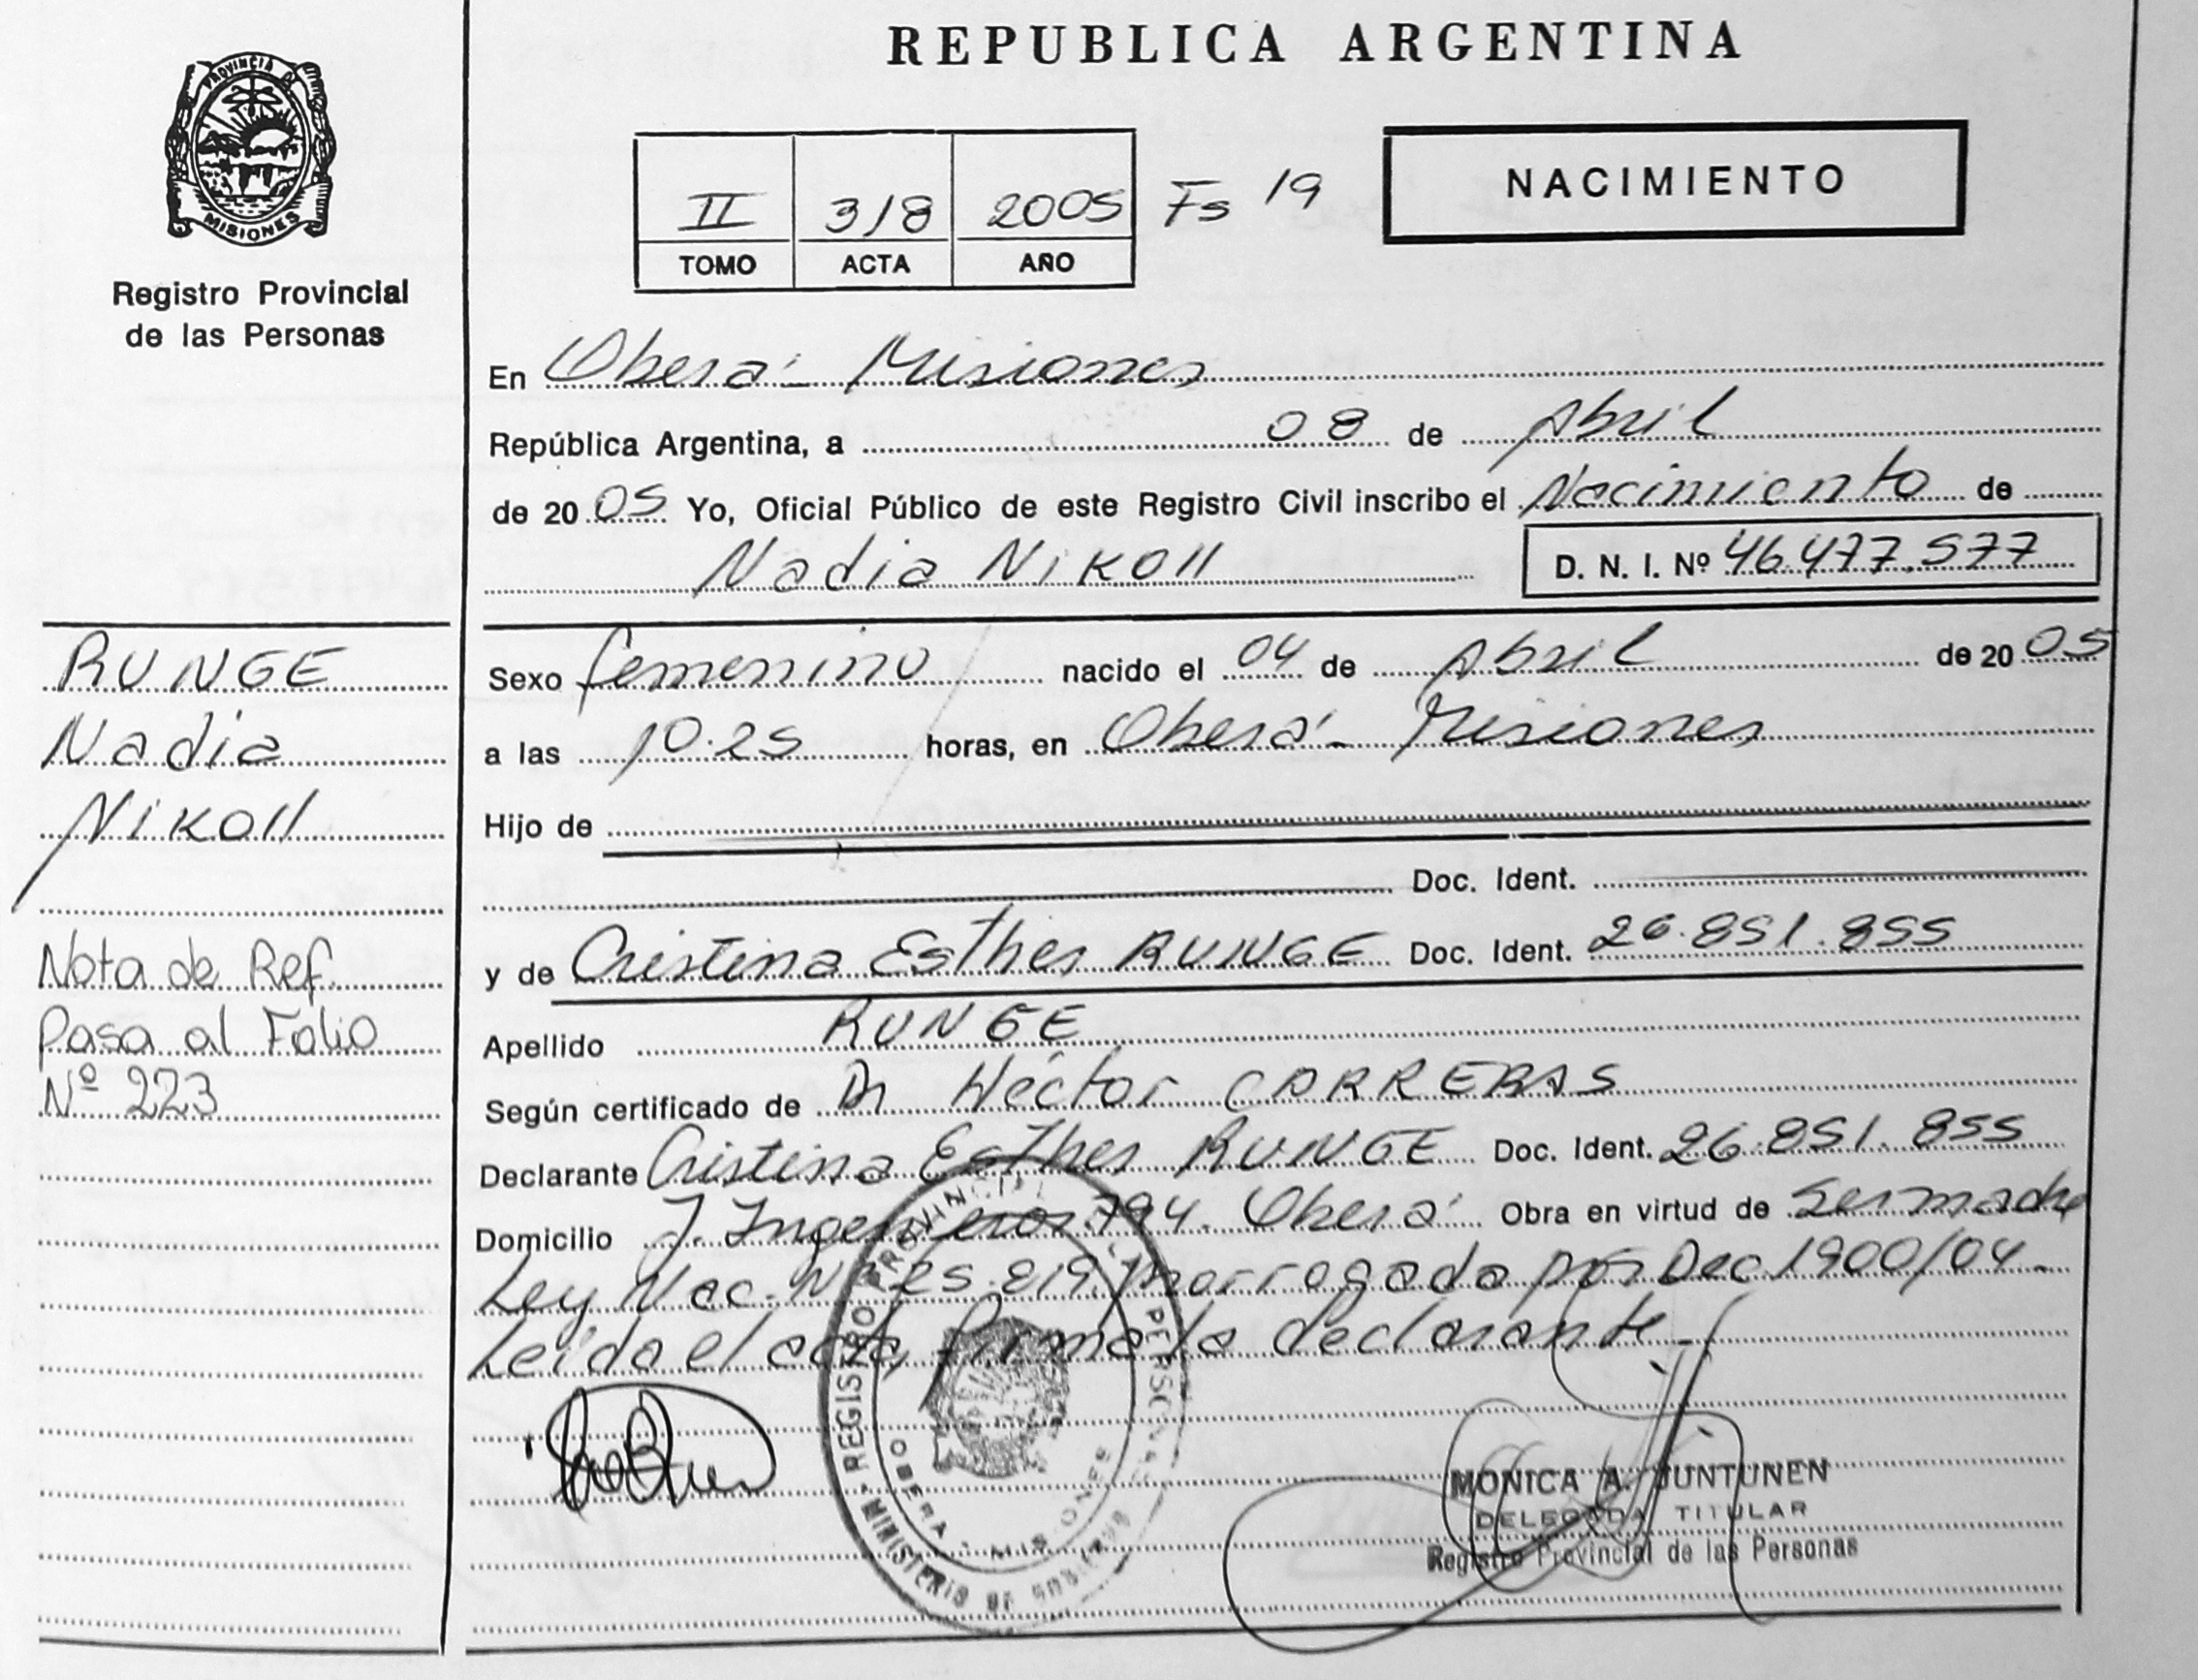 REPUBLICA ARGENTINA
PROVINCIA DE
MISIONES
Registro Provincial
de las Personas
II 318 2005 Fs 19
TOMO ACTA AÑO
NACIMIENTO
En Oberá - Misiones
República Argentina, a 08 de Abril
de 20 05 Yo, Oficial Público de este Registro Civil inscribo el Nacimiento de
Nadia Nikoll D. N. I. Nº 46.477.577
RUNGE
Nadia
Nikoll
Nota de Ref.
Pasa al Folio
Nº 223
Sexo femenino nacido el 04 de Abril de 20 05
a las 10.25 horas, en Oberá - Misiones
Hijo de
Doc. Ident.
y de Cristina Esther RUNGE Doc. Ident. 26.851.855
Apellido RUNGE
Según certificado de Dr Héctor CARRERAS
Declarante Cristina Esther RUNGE Doc. Ident. 26.851.855
Domicilio J. Ingenieros 794. Oberá Obra en virtud de Ser madre
Ley Nac. Nº 25.819 Prorrogada por Dec 1900/04.
Leída el acta, firma la declarante
REGISTRO PROVINCIAL PERSONAS
OBERA - MISIONES
MINISTERIO DE GOBIERNO
MONICA A. JUNTUNEN
DELEGADA TITULAR
Registro Provincial de las Personas